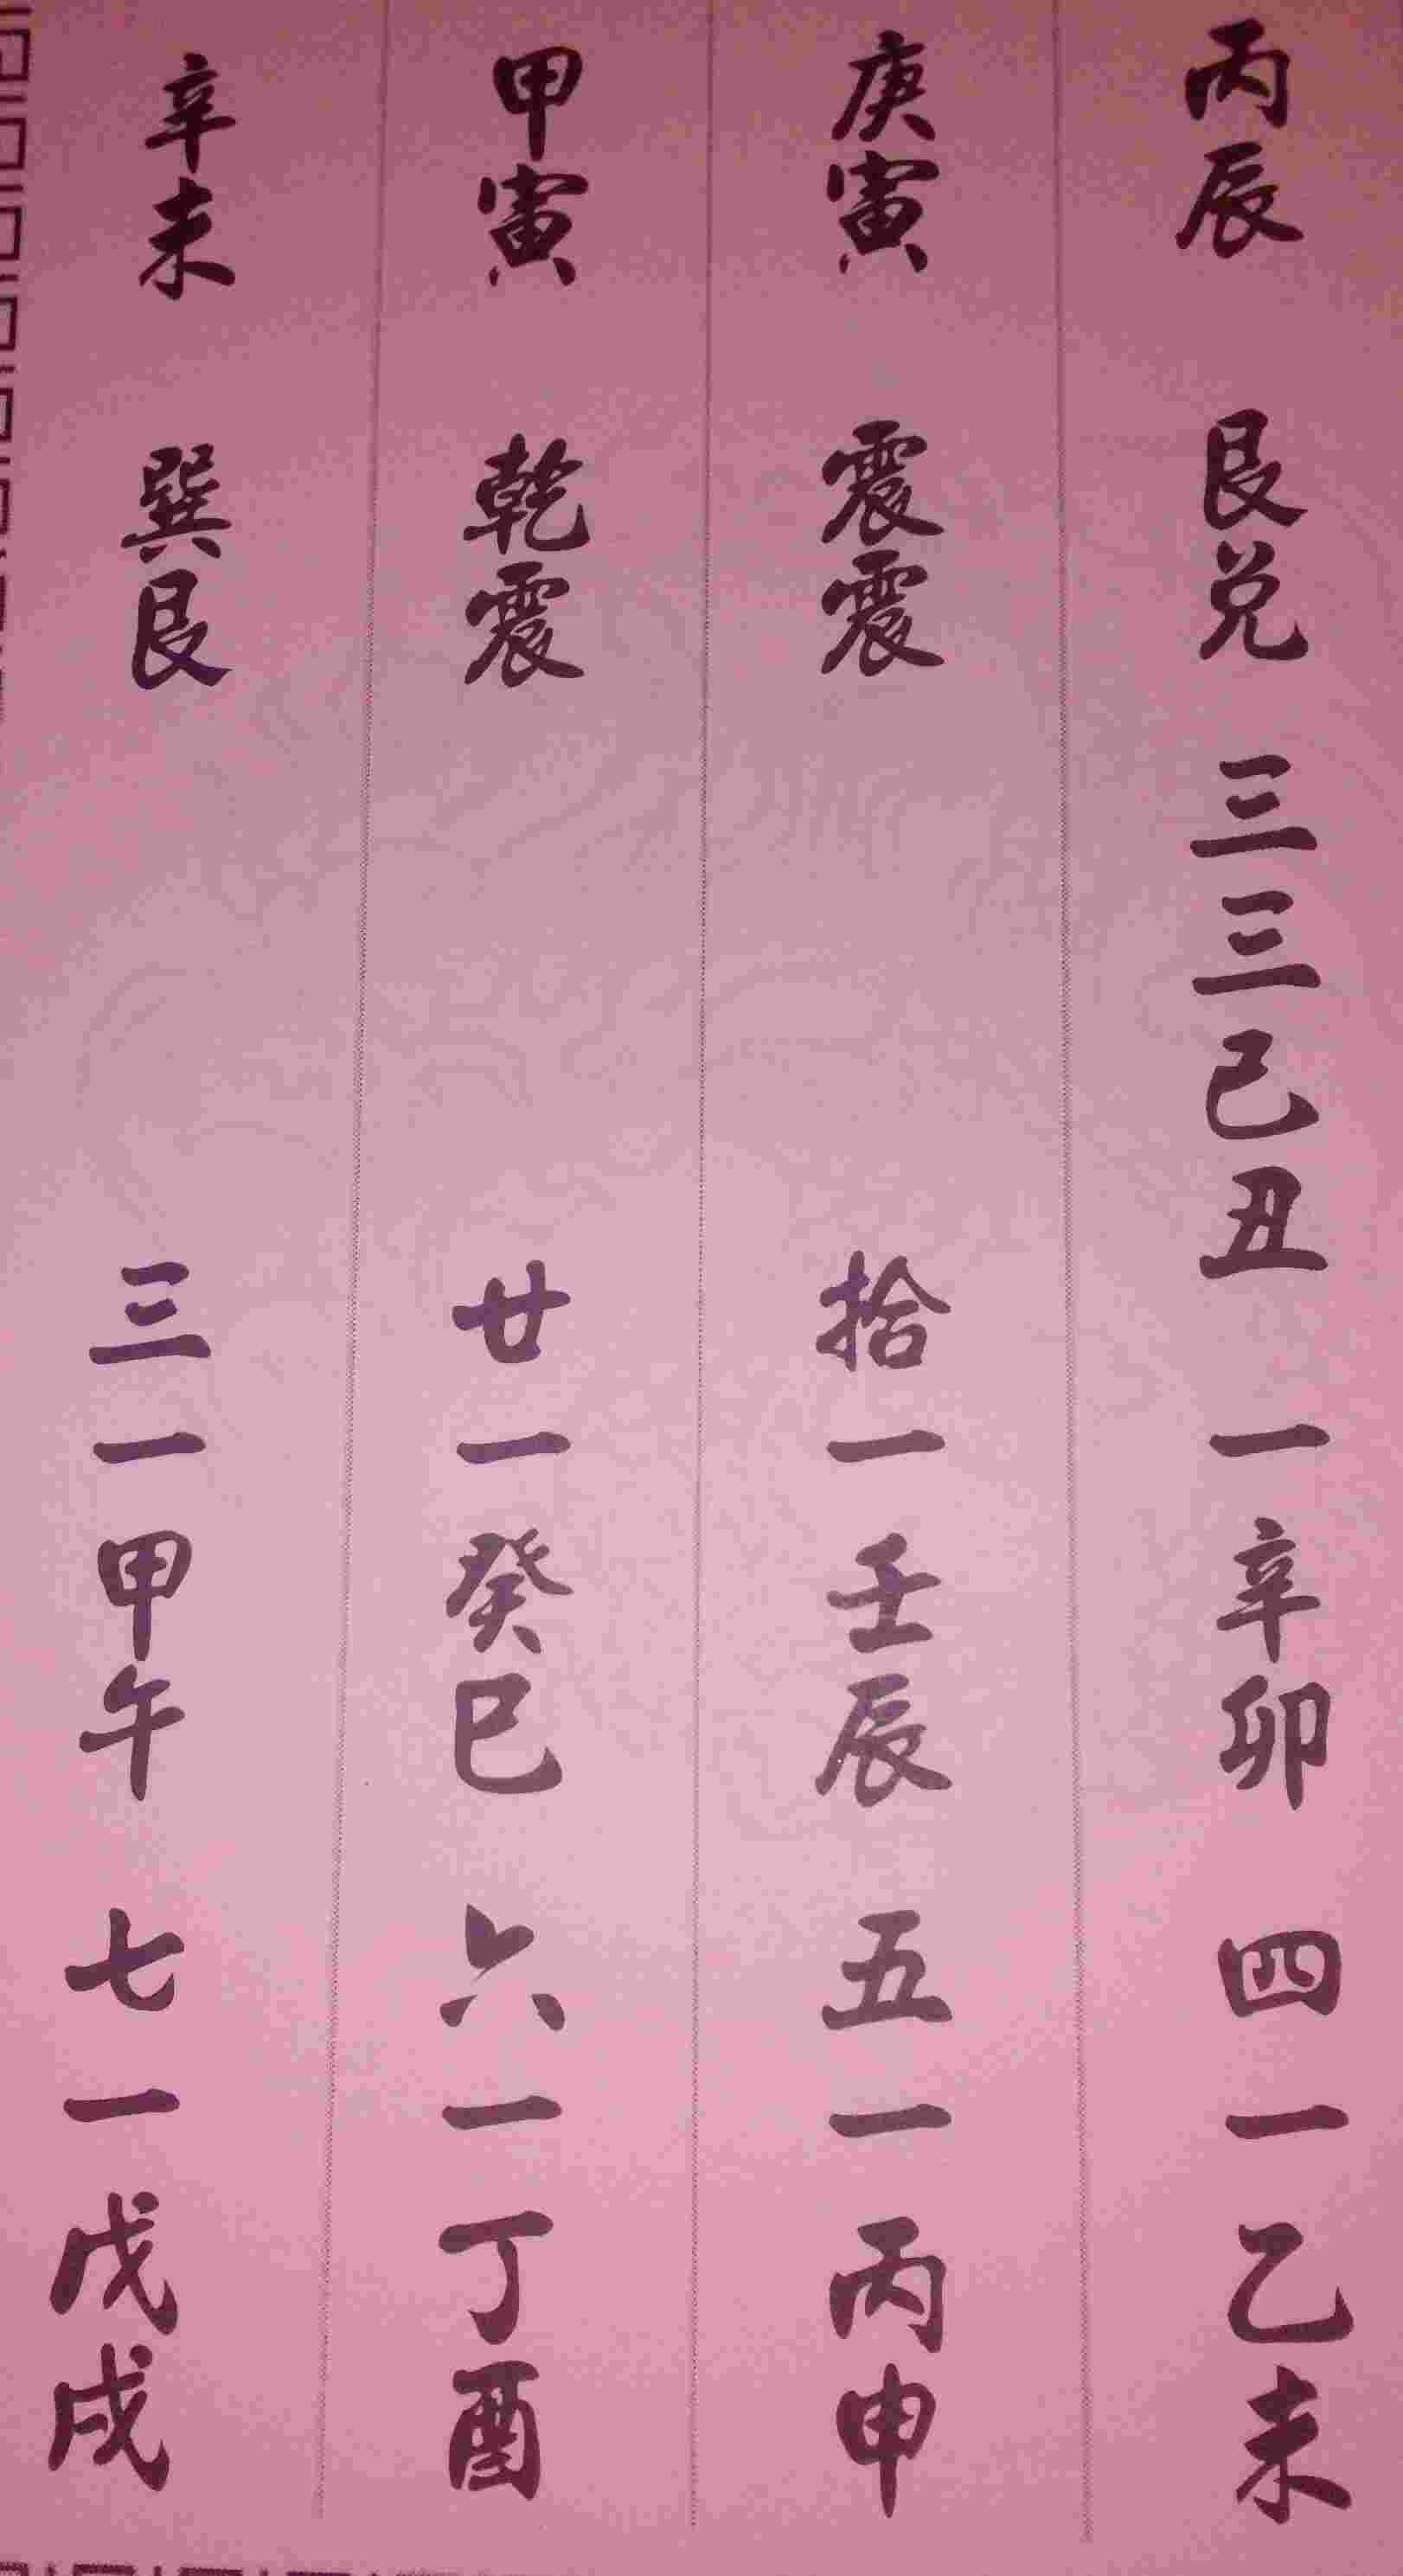 丙辰 艮兑 三三己丑 一辛卯 四一乙未
庚寅 震震 拾一壬辰 五一丙申
甲寅 乾震 廿一癸巳 六一丁酉
辛未 巽艮 三一甲午 七一戊戌